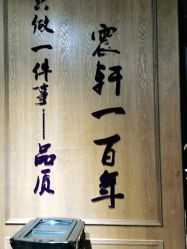 震轩一百年
只做一件事——品质